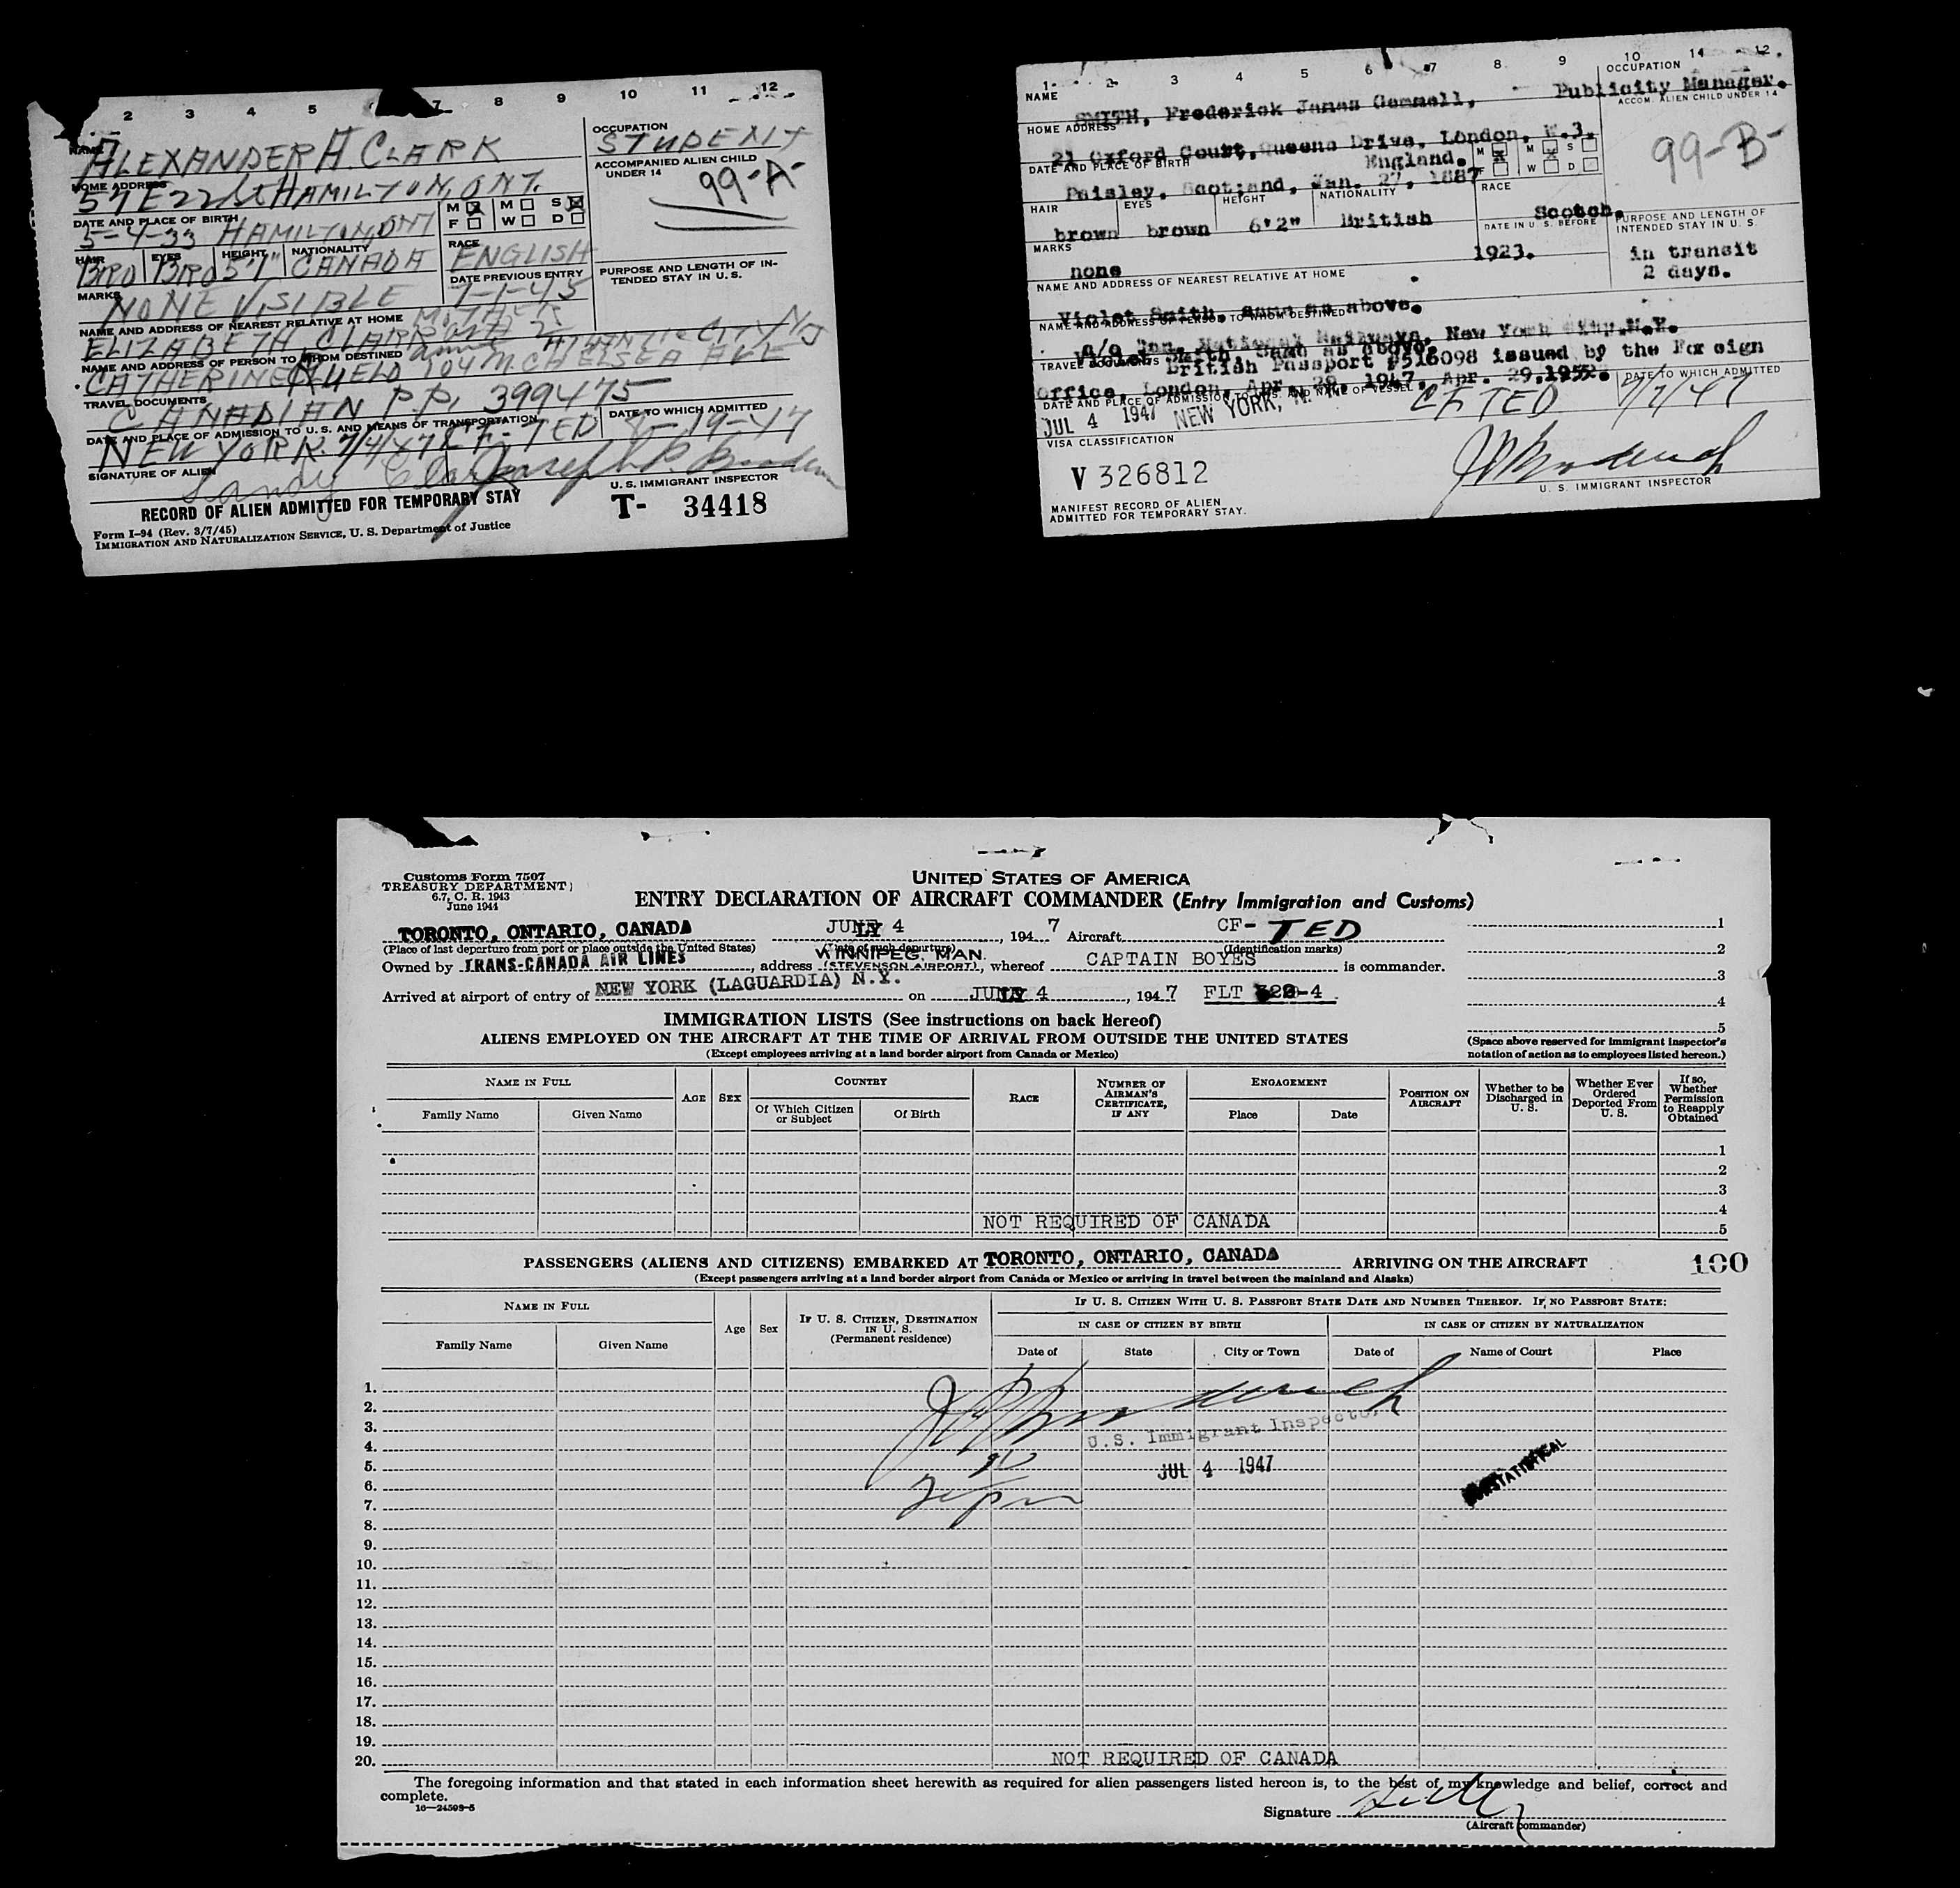 2 3 4 5 7 8 9 10 11 12
NAME ALEXANDER H. CLARK
OCCUPATION STUDENT
HOME ADDRESS 57 E 22 St HAMILTON, ONT.
ACCOMPANIED ALIEN CHILD UNDER 14
99-A-
DATE AND PLACE OF BIRTH 5-4-33 HAMILTON, ONT
M F M W S D
HAIR BRO EYES BRO HEIGHT 5'7" NATIONALITY CANADA
RACE ENGLISH
MARKS NONE VISIBLE
DATE PREVIOUS ENTRY 7-1-45
PURPOSE AND LENGTH OF INTENDED STAY IN U. S.
NAME AND ADDRESS OF NEAREST RELATIVE AT HOME MOTHER
ELIZABETH CLARK
NAME AND ADDRESS OF PERSON TO WHOM DESTINED ATLANTIC CITY NJ
CATHERINE 104 CHELSEA AVE
TRAVEL DOCUMENTS
CANADIAN P.P. 399475
DATE AND PLACE OF ADMISSION TO U. S. AND MEANS OF TRANSPORTATION DATE TO WHICH ADMITTED
NEW YORK 7/4/47 CF-TED 8-19-47
SIGNATURE OF ALIEN Sandy Clark
U. S. IMMIGRANT INSPECTOR
RECORD OF ALIEN ADMITTED FOR TEMPORARY STAY T- 34418
Form I-94 (Rev. 3/7/45)
IMMIGRATION AND NATURALIZATION SERVICE, U. S. Department of Justice
1 3 4 5 6 7 8 9 10 14 12
NAME OCCUPATION
SMITH, Frederick James Gemmell, Publicity Manager.
HOME ADDRESS ACCOM. ALIEN CHILD UNDER 14
21 Oxford Court, Queens Drive, London, W.3.
England.
99-B-
DATE AND PLACE OF BIRTH M F M W S D
Paisley, Scotland, Jan. 27, 1887
HAIR EYES HEIGHT NATIONALITY RACE
brown brown 6'2" British Scotch.
MARKS DATE IN U. S. BEFORE PURPOSE AND LENGTH OF INTENDED STAY IN U. S.
none 1923. in transit
2 days.
NAME AND ADDRESS OF NEAREST RELATIVE AT HOME
Violet Smith, same as above.
NAME AND ADDRESS OF PERSON TO WHOM DESTINED
c/o Can. National Railways, New York City, N.Y.
TRAVEL DOCUMENTS
British Passport #518098 issued by the Foreign
Office, London, Apr. 29, 1947, Apr. 29, 1952.
DATE AND PLACE OF ADMISSION TO U. S. AND NAME OF VESSEL DATE TO WHICH ADMITTED
JUL 4 1947 NEW YORK, N. Y. CF TED 7/7/47
VISA CLASSIFICATION
V 326812
U. S. IMMIGRANT INSPECTOR
MANIFEST RECORD OF ALIEN
ADMITTED FOR TEMPORARY STAY.
Customs Form 7507
TREASURY DEPARTMENT
6.7, C. R. 1943
June 1944
UNITED STATES OF AMERICA
ENTRY DECLARATION OF AIRCRAFT COMMANDER (Entry Immigration and Customs)
TORONTO, ONTARIO, CANADA JULY 4, 1947 Aircraft CF-TED 1
(Place of last departure from port or place outside the United States) (Date of such departure) (Identification marks) 2
Owned by TRANS-CANADA AIR LINES, address WINNIPEG, MAN. (STEVENSON AIRPORT), whereof CAPTAIN BOYES is commander. 3
Arrived at airport of entry of NEW YORK (LAGUARDIA) N.Y. on JULY 4, 1947 FLT -4 4
IMMIGRATION LISTS (See instructions on back hereof) 5
ALIENS EMPLOYED ON THE AIRCRAFT AT THE TIME OF ARRIVAL FROM OUTSIDE THE UNITED STATES
(Space above reserved for immigrant inspector's notation of action as to employees listed hereon.)
(Except employees arriving at a land border airport from Canada or Mexico)
NAME IN FULL AGE SEX COUNTRY RACE NUMBER OF AIRMAN'S CERTIFICATE, IF ANY ENGAGEMENT POSITION ON AIRCRAFT Whether to be Discharged in U. S. Whether Ever Ordered Deported From U. S. If so, Whether Permission to Reapply Obtained
Family Name Given Name Of Which Citizen or Subject Of Birth Place Date
1
2
3
4
NOT REQUIRED OF CANADA
5
PASSENGERS (ALIENS AND CITIZENS) EMBARKED AT TORONTO, ONTARIO, CANADA ARRIVING ON THE AIRCRAFT 100
(Except passengers arriving at a land border airport from Canada or Mexico or arriving in travel between the mainland and Alaska)
NAME IN FULL Age Sex IF U. S. CITIZEN, DESTINATION IN U. S. (Permanent residence) IF U. S. CITIZEN WITH U. S. PASSPORT STATE DATE AND NUMBER THEREOF. IF NO PASSPORT STATE:
IN CASE OF CITIZEN BY BIRTH IN CASE OF CITIZEN BY NATURALIZATION
Family Name Given Name Date of State City or Town Date of Name of Court Place
1.
2.
3.
U.S. Immigrant Inspector
4.
5. JUL 4 1947
6.
7.
8.
9.
10.
11.
12.
13.
14.
15.
16.
17.
18.
19.
20. NOT REQUIRED OF CANADA
The foregoing information and that stated in each information sheet herewith as required for alien passengers listed hereon is, to the best of my knowledge and belief, correct and complete.
16—24509-5
Signature
(Aircraft commander)